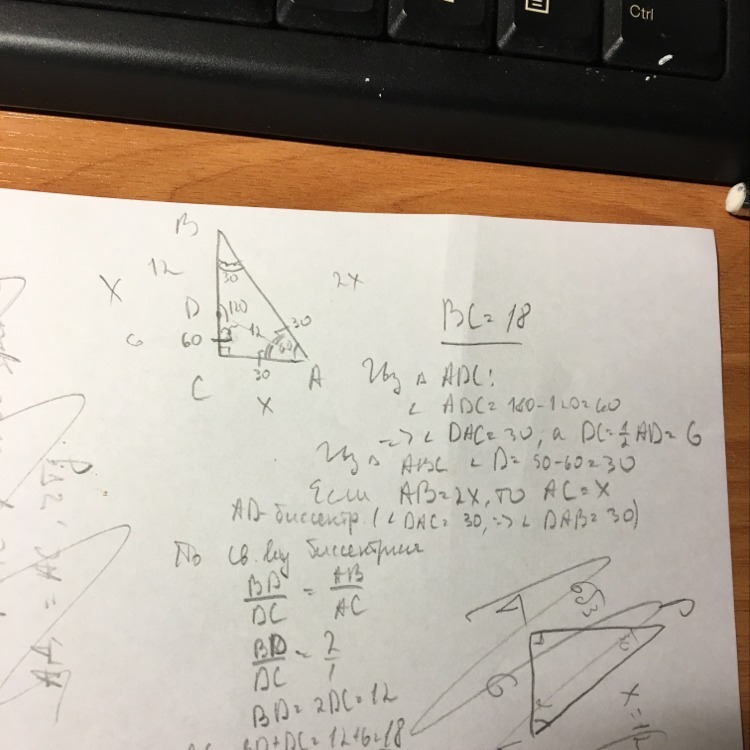 Ctrl
B
12
30
2x
X
D
120
6
60
12
30
60
C
30
A
X
BC = 18
Из ▵ ADC:
∠ ADC = 180-120=60
=> ∠ DAC = 30, а DC=½ AD= 6
Из ▵ ABC ∠ B = 90-60=30
Если AB=2x, то AC=x
AD- биссектр. (∠ DAC = 30, => ∠ DAB = 30)
По св. ву биссектрисы
BD/DC = AB/AC
BD/DC = 2/1
BD = 2DC = 12
BD+DC = 12+6=18
6√3
30
6